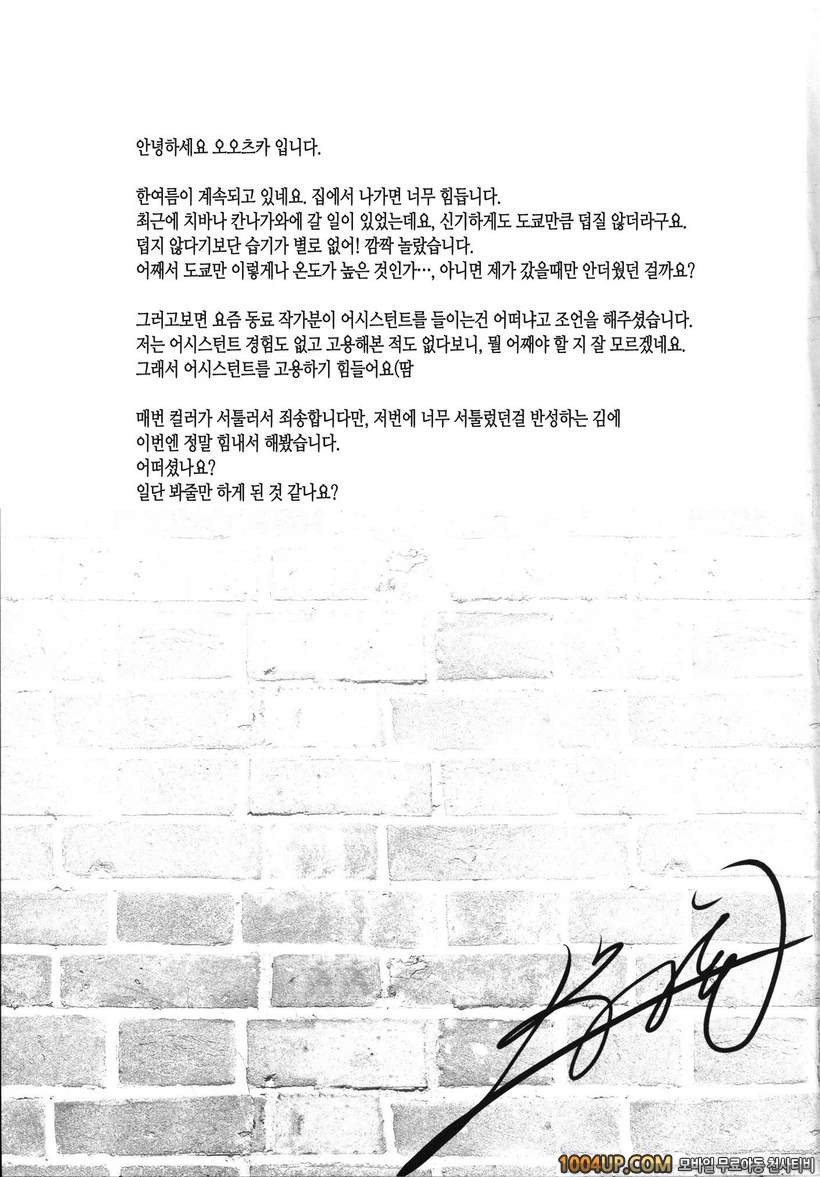 안녕하세요 오오츠카 입니다.
한여름이 계속되고 있네요. 집에서 나가면 너무 힘듭니다.
최근에 치바나 칸나가와에 갈 일이 있었는데요, 신기하게도 도쿄만큼 덥질 않더라구요.
덥지 않다기보단 습기가 별로 없어! 깜짝 놀랐습니다.
어째서 도쿄만 이렇게나 온도가 높은 것인가…, 아니면 제가 갔을때만 안더웠던 걸까요?
그러고보면 요즘 동료 작가분이 어시스턴트를 들이는건 어떠냐고 조언을 해주셨습니다.
저는 어시스턴트 경험도 없고 고용해본 적도 없다보니, 뭘 어째야 할 지 잘 모르겠네요.
그래서 어시스턴트를 고용하기 힘들어요(땀
매번 컬러가 서툴러서 죄송합니다만, 저번에 너무 서툴렀던걸 반성하는 김에
이번엔 정말 힘내서 해봤습니다.
어떠셨나요?
일단 봐줄만 하게 된 것 같나요?
1004UP.COM 모바일 무료야동 천사티비